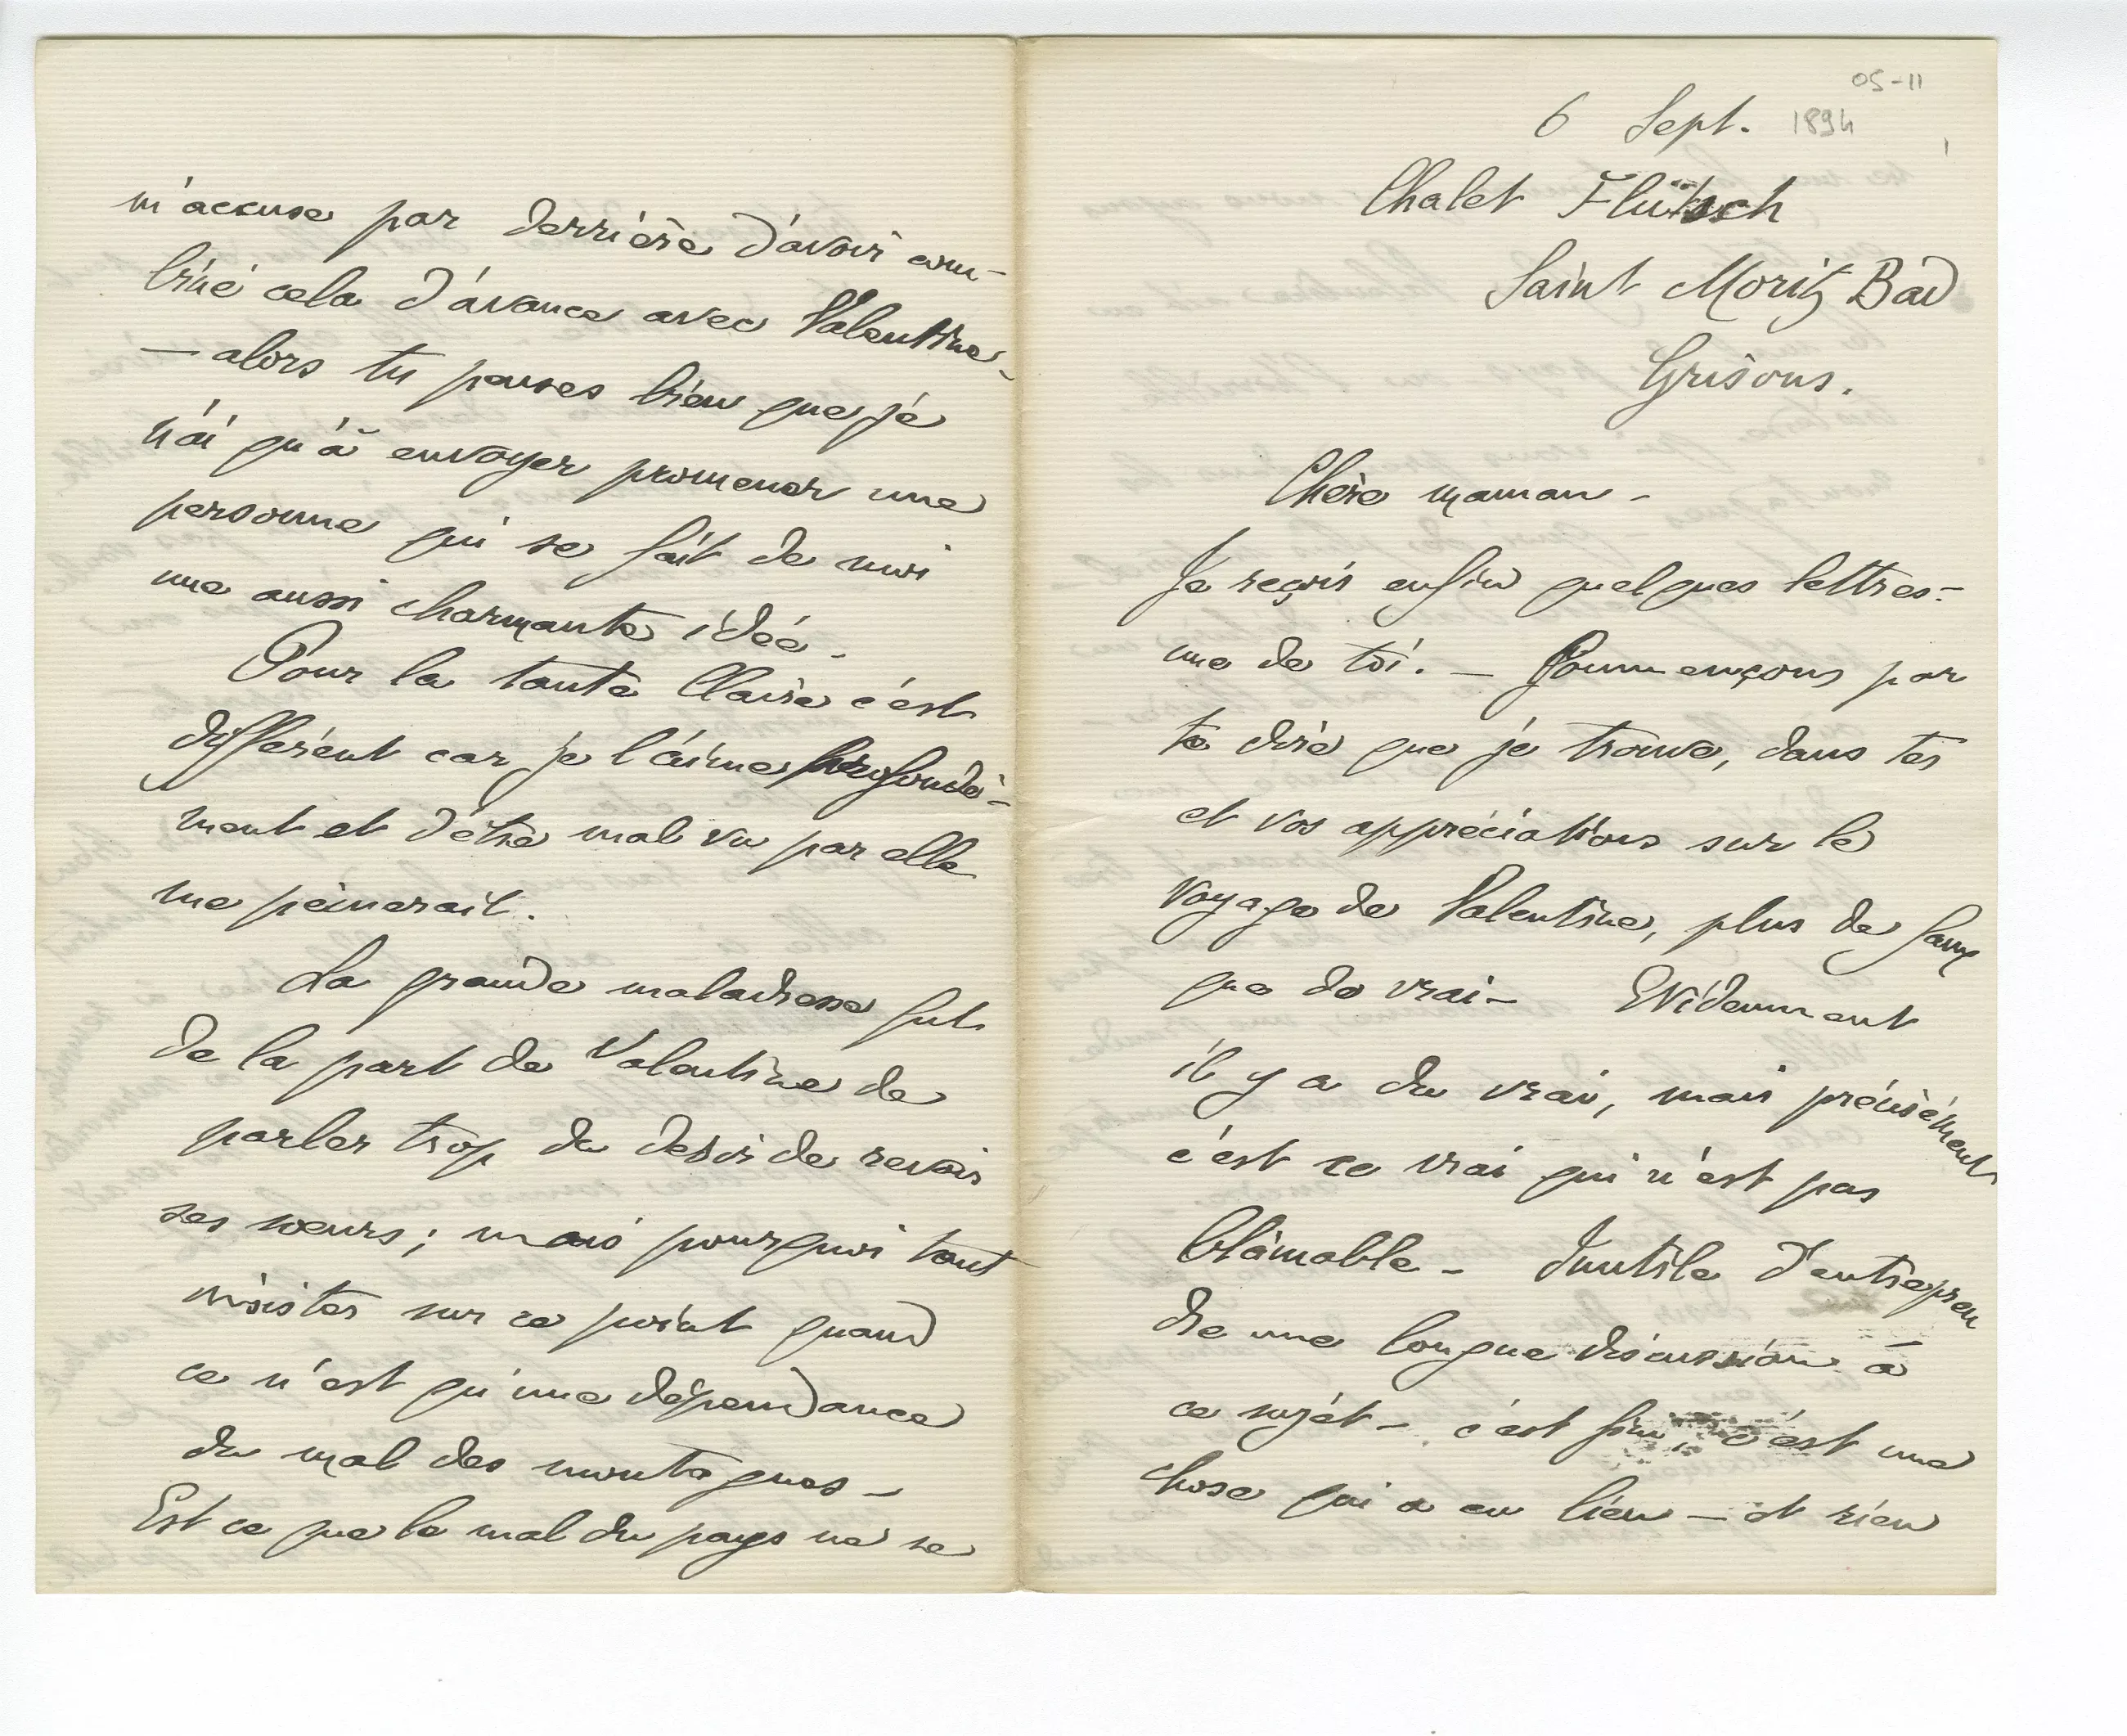 05-11
6 Sept. 1894
Chalet Flütsch
Saint Moritz Bad
Grisons.
Chère maman -
Je reçois enfin quelques lettres -
une de toi. - Commençons par
te dire que je trouve, dans tes
et vos appréciations sur le
voyage de Valentine, plus de faux
que de vrai - Evidemment
il y a du vrai, mais précisément
c'est ce vrai qui n'est pas
blâmable - Inutile d'entrepren
dre une longue discussion à
ce sujet - c'est fini, c'est une
chose qui a eu lieu - et rien
m'accuse par derrière d'avoir com-
biné cela d'avance avec Valentine -
- alors tu penses bien que je
n'ai qu'à envoyer promener une
personne qui se fait de moi
une aussi charmante idée -
Pour la tante Claire c'est
différent car je l'aime profondé-
ment et d'être mal vu par elle
me peinerait.
La grande maladresse fut
de la part de Valentine de
parler trop du désir de revoir
ses sœurs ; mais pourquoi tant
insister sur ce point quand
ce n'est qu'une dépendance
du mal des montagnes -
Est ce que le mal du pays ne se